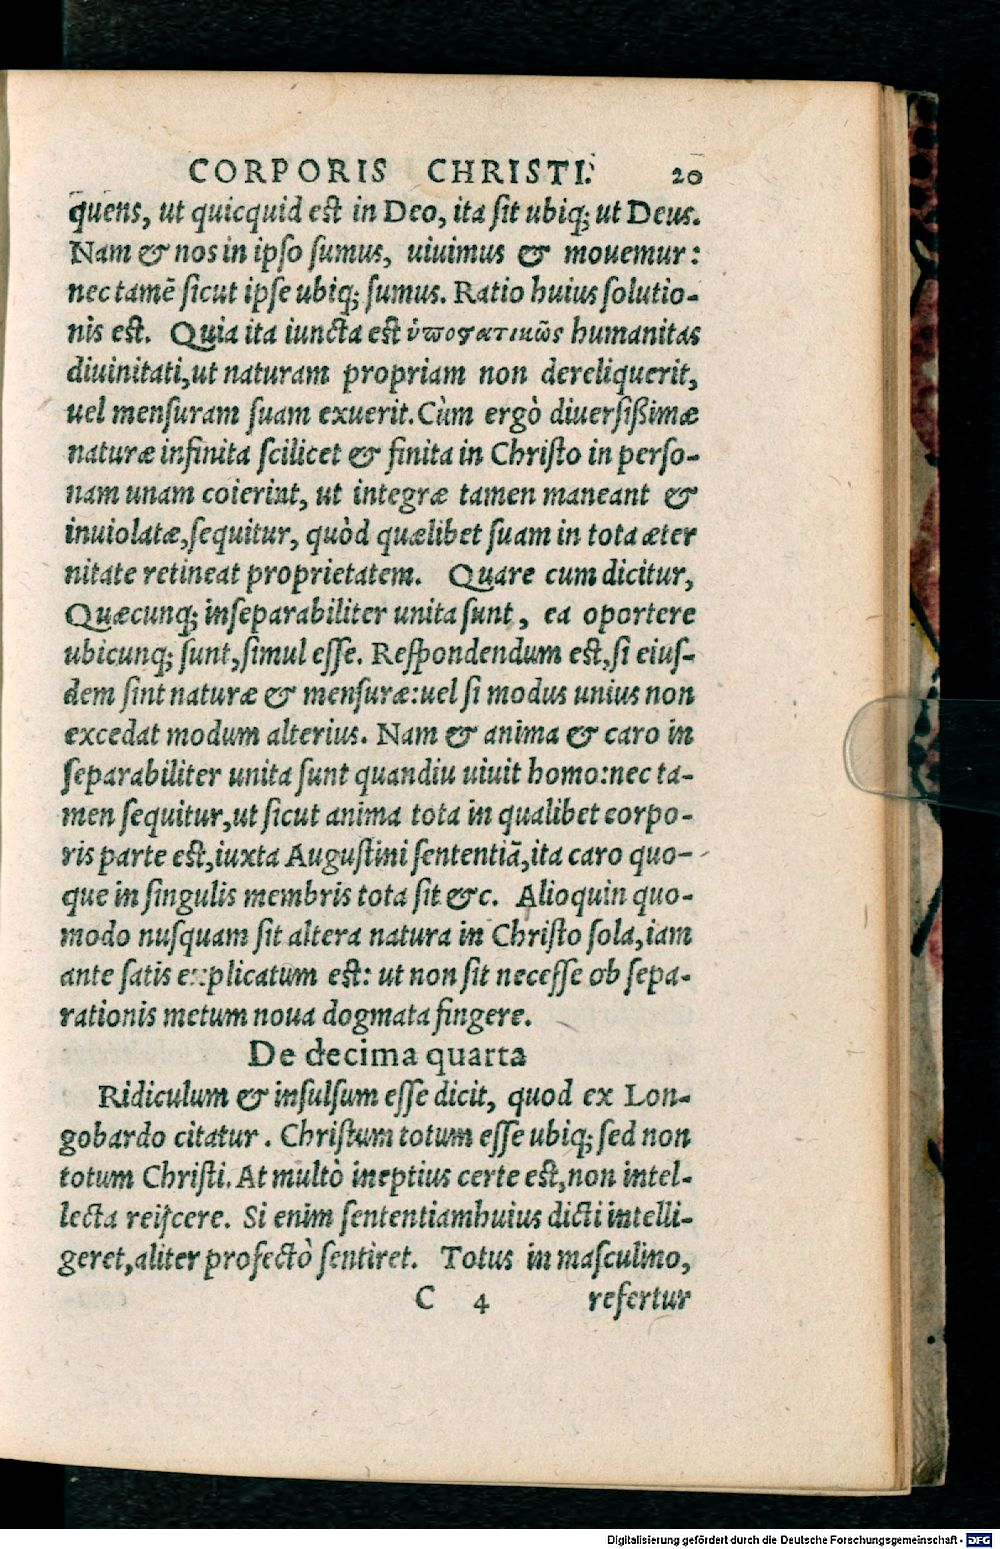 CORPORIS CHRISTI. 20
quens, ut quicquid est in Deo, ita sit ubiq; ut Deus.
Nam & nos in ipso sumus, uiuimus & mouemur:
nec tamē sicut ipse ubiq; sumus. Ratio huius solutio-
nis est. Quia ita iuncta est ὑποστατικῶς humanitas
diuinitati, ut naturam propriam non dereliquerit,
uel mensuram suam exuerit. Cùm ergò diuersißimæ
naturæ infinita scilicet & finita in Christo in perso-
nam unam coierint, ut integræ tamen maneant &
inuiolatæ, sequitur, quòd quælibet suam in tota æter
nitate retineat proprietatem. Quare cum dicitur,
Quæcunq; inseparabiliter unita sunt, ea oportere
ubicunq; sunt, simul esse. Respondendum est, si eius-
dem sint naturæ & mensuræ: uel si modus unius non
excedat modum alterius. Nam & anima & caro in
separabiliter unita sunt quandiu uiuit homo: nec ta-
men sequitur, ut sicut anima tota in qualibet corpo-
ris parte est, iuxta Augustini sententiā, ita caro quo-
que in singulis membris tota sit &c. Alioquin quo-
modo nusquam sit altera natura in Christo sola, iam
ante satis explicatum est: ut non sit necesse ob sepa-
rationis metum noua dogmata fingere.
De decima quarta
Ridiculum & insulsum esse dicit, quod ex Lon-
gobardo citatur. Christum totum esse ubiq; sed non
totum Christi. At multò ineptius certe est, non intel-
lecta reijcere. Si enim sententiam huius dicti intelli-
geret, aliter profectò sentiret. Totus in masculino,
C 4 refertur
Digitalisierung gefördert durch die Deutsche Forschungsgemeinschaft - DFG